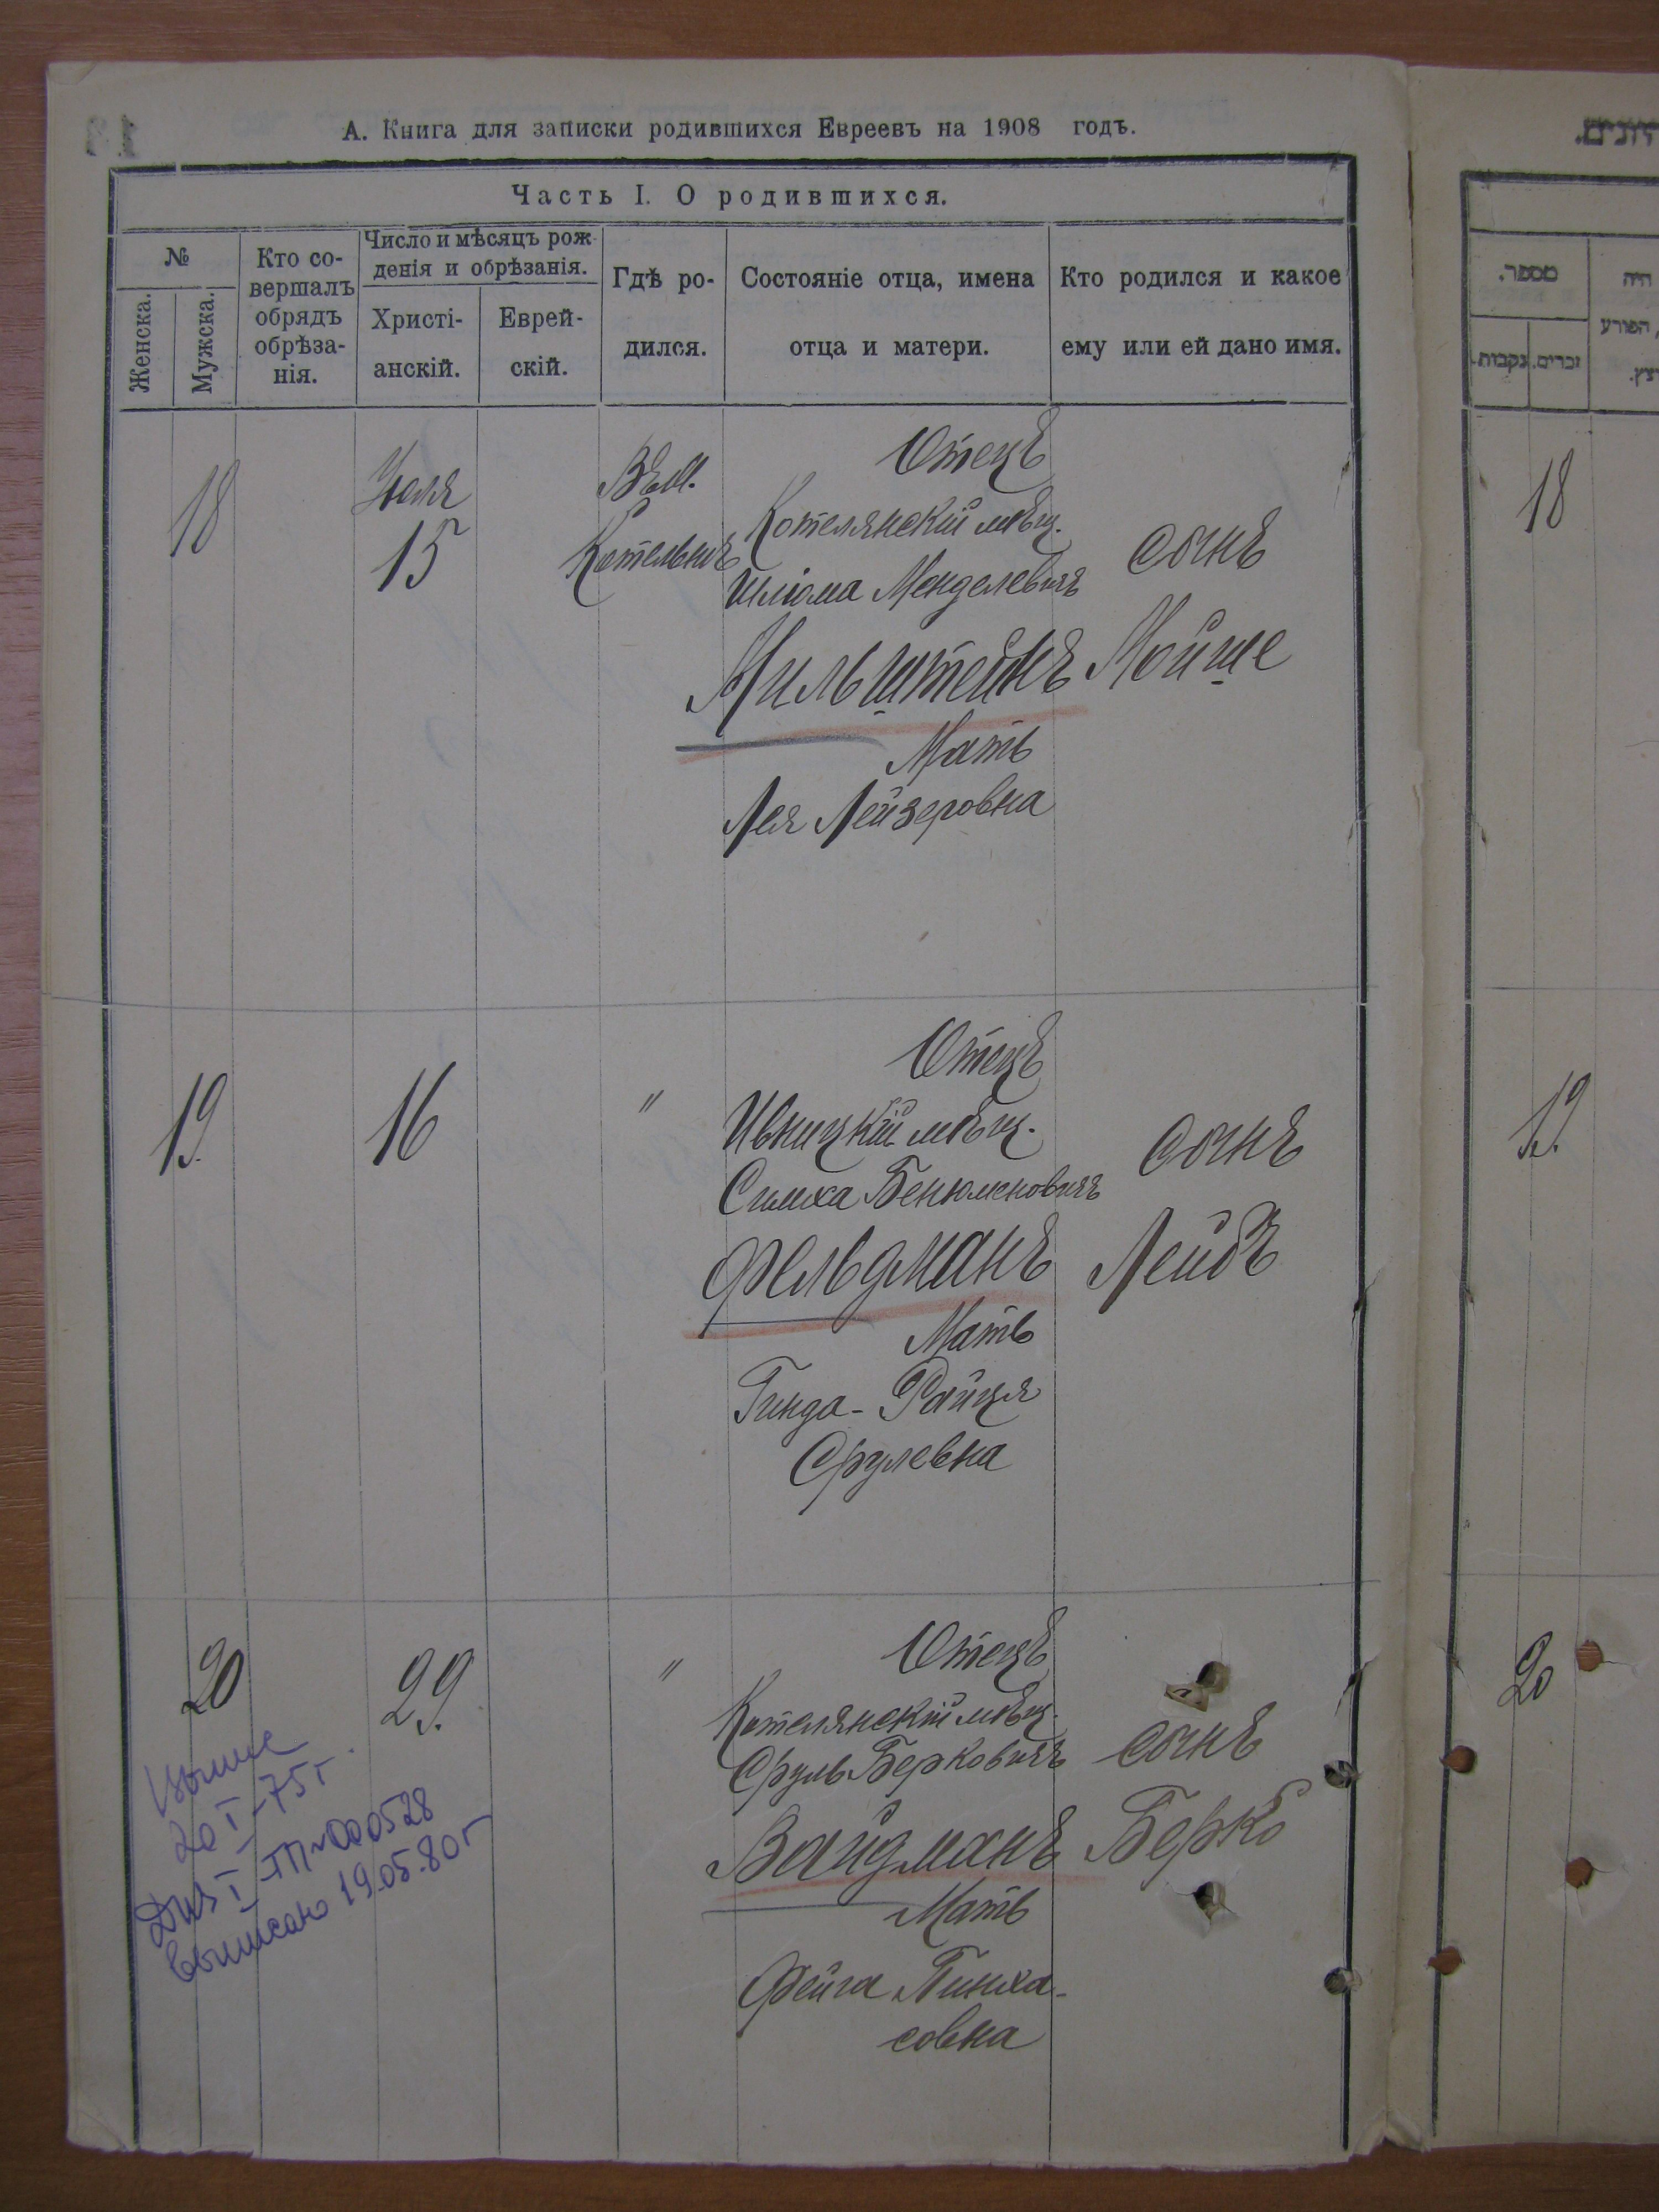 А. Книга для записки родившихся Евреевъ на 1908 годъ.
Часть I. О родившихся.
№
Женска.
Мужска.
Кто со-
вершалъ
обрядъ
обрѣза-
нія.
Число и мѣсяцъ рож-
денія и обрѣзанія.
Христі-
анскій.
Еврей-
скій.
Гдѣ ро-
дился.
Состояніе отца, имена
отца и матери.
Кто родился и какое
ему или ей дано имя.
18
Іюля
15
Въ м.
Котельнѣ
Отецъ
Котелянскій мѣщ.
Шліома Менделевичъ
Мильштейнъ
Мать
Лея Лейзеровна
сынъ
Мойше
19.
16
"
Отецъ
Ивницкій мѣщ.
Симха Бенюменовичъ
Фельдманъ
Мать
Гинда-Райця
Срулевна
сынъ
Лейбъ
20
29.
"
Отецъ
Котелянскій мѣщ.
Сруль Берковичъ
Вайдманъ
Мать
Фейга Пинха-
совна
сынъ
Берко
20 I-75 г
000528
выписано 19.05.80 г
מספר.
זכרים.
נקבות.
היה
הפורע
18
19.
20